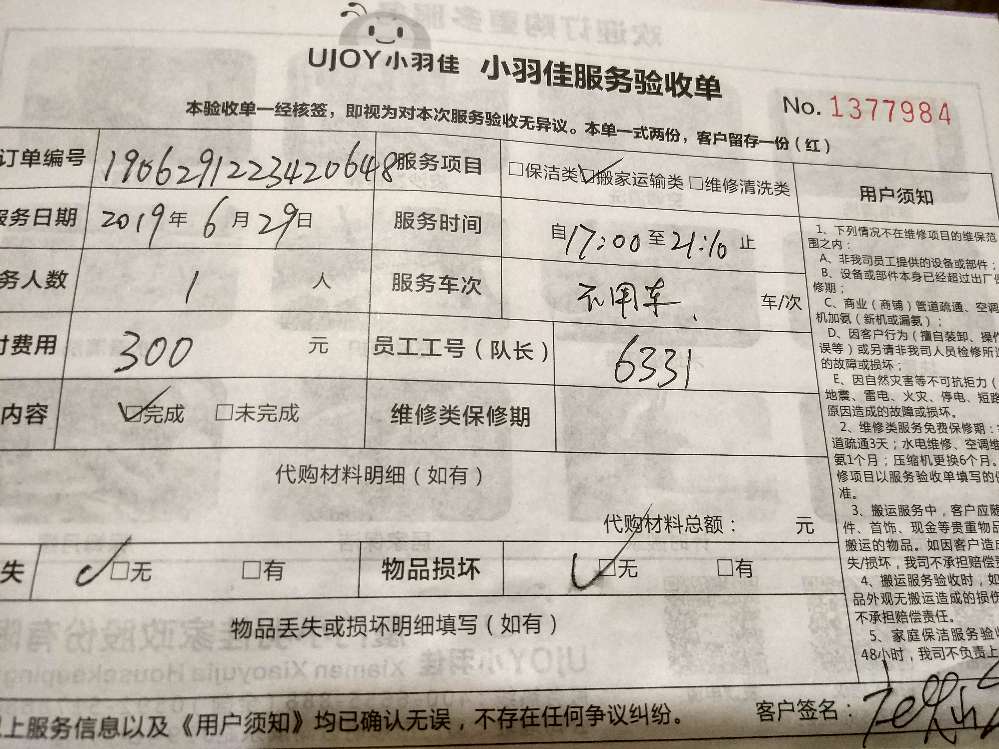 UJOY小羽佳 小羽佳服务验收单
No. 1377984
本验收单一经核签，即视为对本次服务验收无异议。本单一式两份，客户留存一份（红）
订单编号 1906291223420648 服务项目 □保洁类 ☑搬家运输类 □维修清洗类
服务日期 2019年6月29日 服务时间 自17:00至21:10止
务人数 1 人 服务车次 不用车 车/次
付费用 300 元 员工工号（队长） 6331
内容 ☑完成 □未完成 维修类保修期
代购材料明细（如有）
代购材料总额： 元
失 ☑无 □有 物品损坏 ☑无 □有
物品丢失或损坏明细填写（如有）
上服务信息以及《用户须知》均已确认无误，不存在任何争议纠纷。 客户签名：
用户须知
1、下列情况不在维修项目的维保范
围之内：
A、非我司员工提供的设备或部件；
B、设备或部件本身已经超过出厂保
修期；
C、商业（商铺）管道疏通、空调
机加氨（新机或漏氨）；
D、因客户行为（擅自装卸、操作
误等）或另请非我司人员检修所造
的故障或损坏；
E、因自然灾害等不可抗拒力（
地震、雷电、火灾、停电、短路
原因造成的故障或损坏。
2、维修类服务免费保修期：
道疏通3天；水电维修、空调维
氨1个月；压缩机更换6个月。
修项目以服务验收单填写的
准。
3、搬运服务中，客户应随
件、首饰、现金等贵重物品
搬运的物品。如因客户造成
失/损坏，我司不承担赔偿责
4、搬运服务验收时，如
品外观无搬运造成的损伤
不承担赔偿责任。
5、家庭保洁服务验收
48小时，我司不负责上